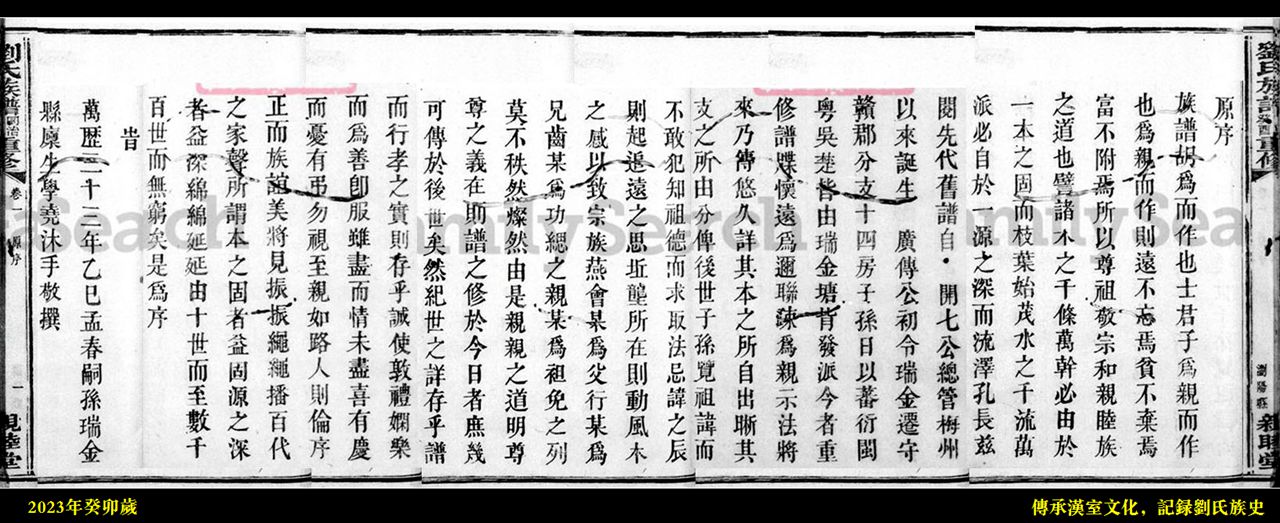 劉氏族譜
重修
瀏陽縣
親睦堂
原序
族譜胡為而作也士君子為親而作
也為親而作則遠不忘焉貧不棄焉
富不附焉所以尊祖敬宗和親睦族
之道也譬諸木之千條萬幹必由於
一本之固而枝葉始茂水之千流萬
派必自於一源之深而流澤孔長茲
閱先代舊譜自・開七公總管梅州
以來誕生 廣傳公初令瑞金遷守
贛郡分支十四房子孫日以蕃衍閩
粵吳楚皆由瑞金塘背發派今者重
修譜牒懷遠為邇聯疎為親示法將
來乃俦悠久詳其本之所自出晰其
支之所由分俾後世子孫覽祖諱而
不敢犯知祖德而求取法忌諱之辰
則起追遠之思坵壟所在則動風木
之感以致宗族燕會某為父行某為
兄齒某為功緦之親某為祖免之列
莫不秩然燦然由是親親之道明尊
尊之義在則譜之修於今日者庶幾
可傳於後世矣然紀世之詳存乎譜
而行孝之實則存乎誠使敦禮嫻樂
而為善卽服雖盡而情未盡喜有慶
而憂有弔勿視至親如路人則倫序
正而族誼美將見振振繩繩播百代
之家聲所謂本之固者益固源之深
者益深綿綿延延由十世而至數千
百世而無窮矣是為序
旹
萬歷三十三年乙巳孟春嗣孫瑞金
縣廩生學堯沐手敬撰
劉氏族譜
重修
卷一
原序
一
親睦堂
2023年癸卯歲
傳承漢室文化，記録劉氏族史